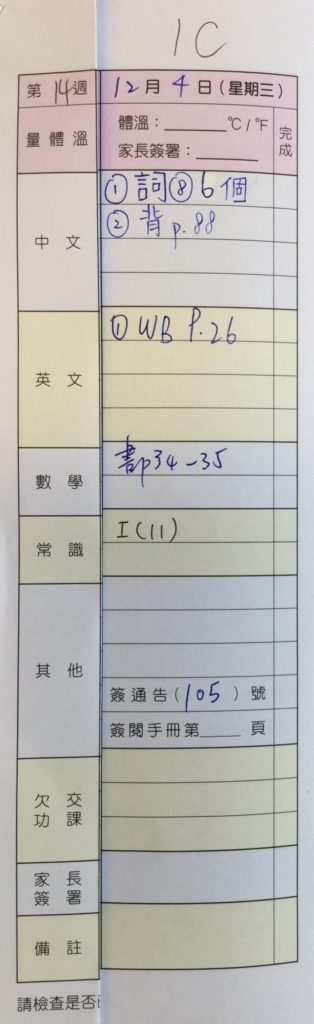 1C
第14週 12月4日(星期三)
量體溫 體溫：______ °C/°F 完成
家長簽署：______
中文 ①詞⑧6個
②背p.88
英文 ①WB P.26
數學 書p34-35
常識 I(11)
其他
簽通告(105)號
簽閱手冊第____頁
欠交功課
家長簽署
備註
請檢查是否